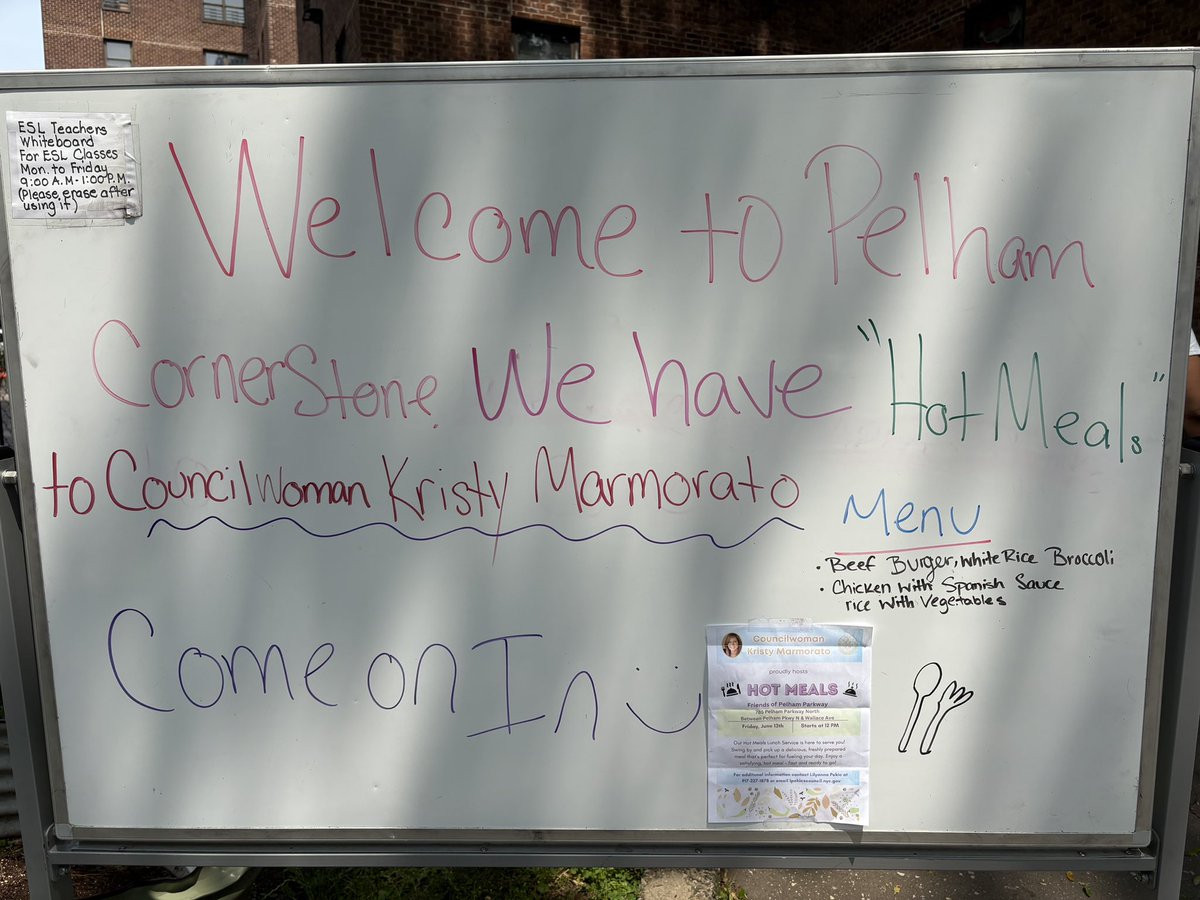 ESL Teachers
Whiteboard
For ESL Classes
Mon. to Friday
9:00 A.M - 1:00 P.M.
(Please, erase after
using it)
Welcome to Pelham
CornerStone. We have "Hot Meals"
to CouncilWoman Kristy Marmorato
Menu
• Beef Burger, White Rice Broccoli
• Chicken with Spanish Sauce
rice with Vegetables
Come on In
Councilwoman
Kristy Marmorato
proudly hosts
HOT MEALS
Friends of Pelham Parkway
Pelham Parkway North
Between Pelham Pkwy N & Wallace Ave
Friday, June 13th Starts at 12 PM
Our Hot Meals Lunch Service is here to serve you!
Swing by and pick up a delicious, freshly prepared
meal that's perfect for fueling your day. Enjoy a
satisfying, hot meal - fast and ready to go!
For additional information contact Lilyanna Pekic at
917-227-1878 or email